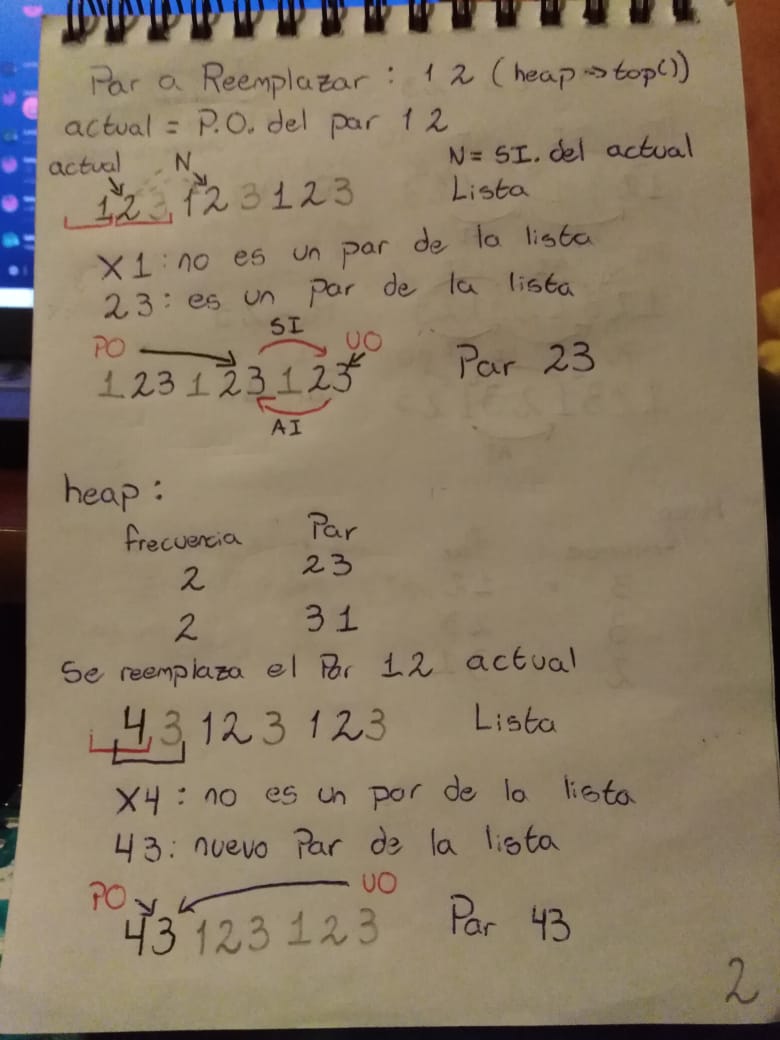 Par a Reemplazar : 1 2 (heap->top())
actual = P.O. del par 1 2
actual N N = SI. del actual
1 2 3 1 2 3 1 2 3 Lista
X1 : no es un par de la lista
2 3 : es un par de la lista
PO SI UO
1 2 3 1 2 3 1 2 3 Par 23
AI
heap :
frecuencia Par
2 23
2 31
Se reemplaza el Par 12 actual
4 3 1 2 3 1 2 3 Lista
X4 : no es un par de la lista
43 : nuevo Par de la lista
PO UO
4 3 1 2 3 1 2 3 Par 43
2